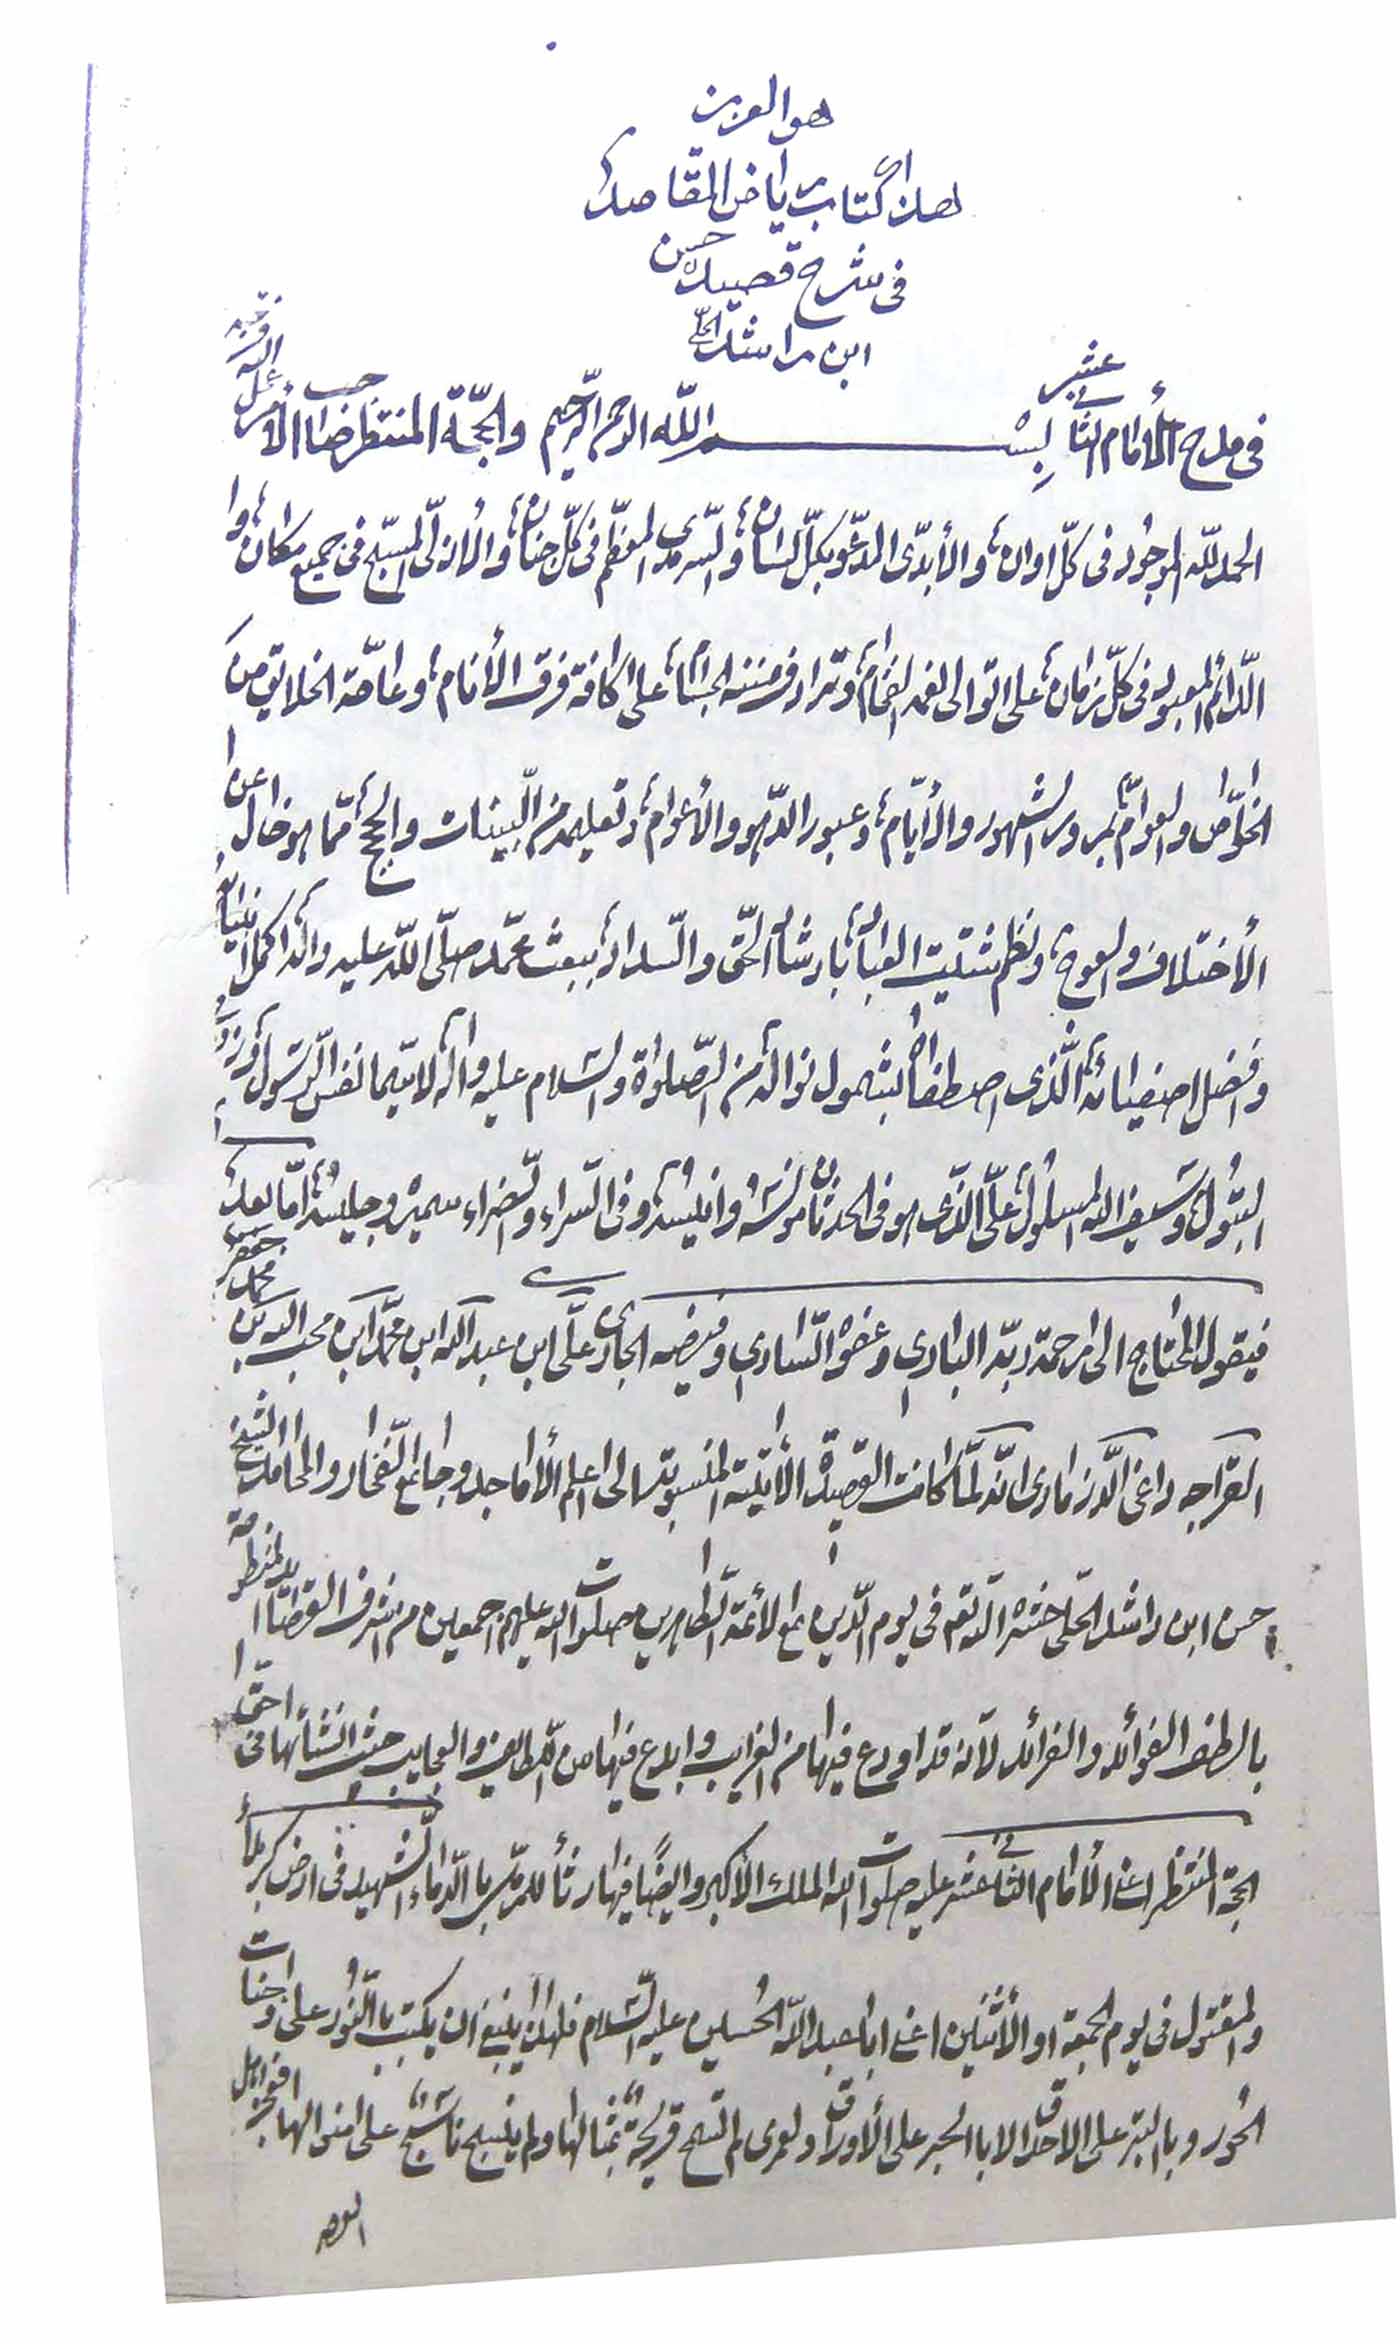 هو العزيز
هذا كتاب رياض المقاصد
فى شرح قصيدة حسن
ابن راشد الحلّى
فى مدح الأمام الثانى عشر والحجّة المنتظر صاحب الأمر عجل الله فرجه
بسم اللّه الرحمن الرّحيم
الحمد للّه الموجُود فى كلّ اوان، والأبدّى المدعّو بكلّ لسان، والسّرمدى المعظّم فى كلّ جنان، والأزلّى المسبّح فى جميع مكان، وا
الدّائم المعبود فى كلّ زمان، على توالى نعمه الفخام، وترادف مننه الجسام، على كافة فرق الأنام، وعامّة الخلايق من
الخوّاص والعوامّ بمرور الشهور والأيّام، وعبور الدّهور والأعوام، وتعليمهم من البّينات والحجج، ممّا هو خال عن ا
الأختلاف والعوج، ونظم شتيت العباد بارشاد الحّق والسّداد، ببعث محمّد صلّى اللّه عليه واله اكمل انبيائه
وافضل اصفيائه، الّذى اصطفاه بشمول نواله من الصّلواة والسّلام عليه واله، لاسيّما نفس الرّسول، وزوج
البتُول، وسيف الله المسلُول، علّى الذّى هو فى الحدثان مونسُه وانيسُه، وفى السّراء والضّراء سميرُه وجليسُه، امّا بعدُ
فيقول المحتاج الى مرحمة ربّه البارى وعفوه السّارى وفيضه الجارى علّى ابن عبد الله ابن محمّد ابن محب الله بن محمد جعفر
القراجه داغى الّدزمارى انّه لمّا كانت القصيدة الأتية المنسوبة الى اعلم الأماجد وجامع الفخار والمحامد الشيخ
حسن ابن راشد الحلّى حشره اللّه تعم فى يوم الدّين مع الأئمة الطّاهرين صلوات الله عليهم اجمعين من اشرف القصائد المنظومة
بالطف الفوائد والفرائد لأنّه قد اودع فيها من الغرايب وابدع فيها من اللّطايف والعجايب حيث انشأها فى
الحجّة المنتظر اعنى الأمام الثانى عشر عليه صلوات الله الملك الأكبر وايضًا فيها رثاُ للمرمّل بالدّماء الشهيد فى ارض كربلا
والمقتول فى يوم الجمعة او الأثنين اعنى ابا عبد اللّه الحُسين عليه السّلام فلهذا ينبغى ان يكتب بالنّور على وجنات
الحُور وبالتبر على الاحداق لا بالحبر على الأوراق ولعمرى لم تسمح قريحة بمثالها ولم ينسج ناسج على منوالها